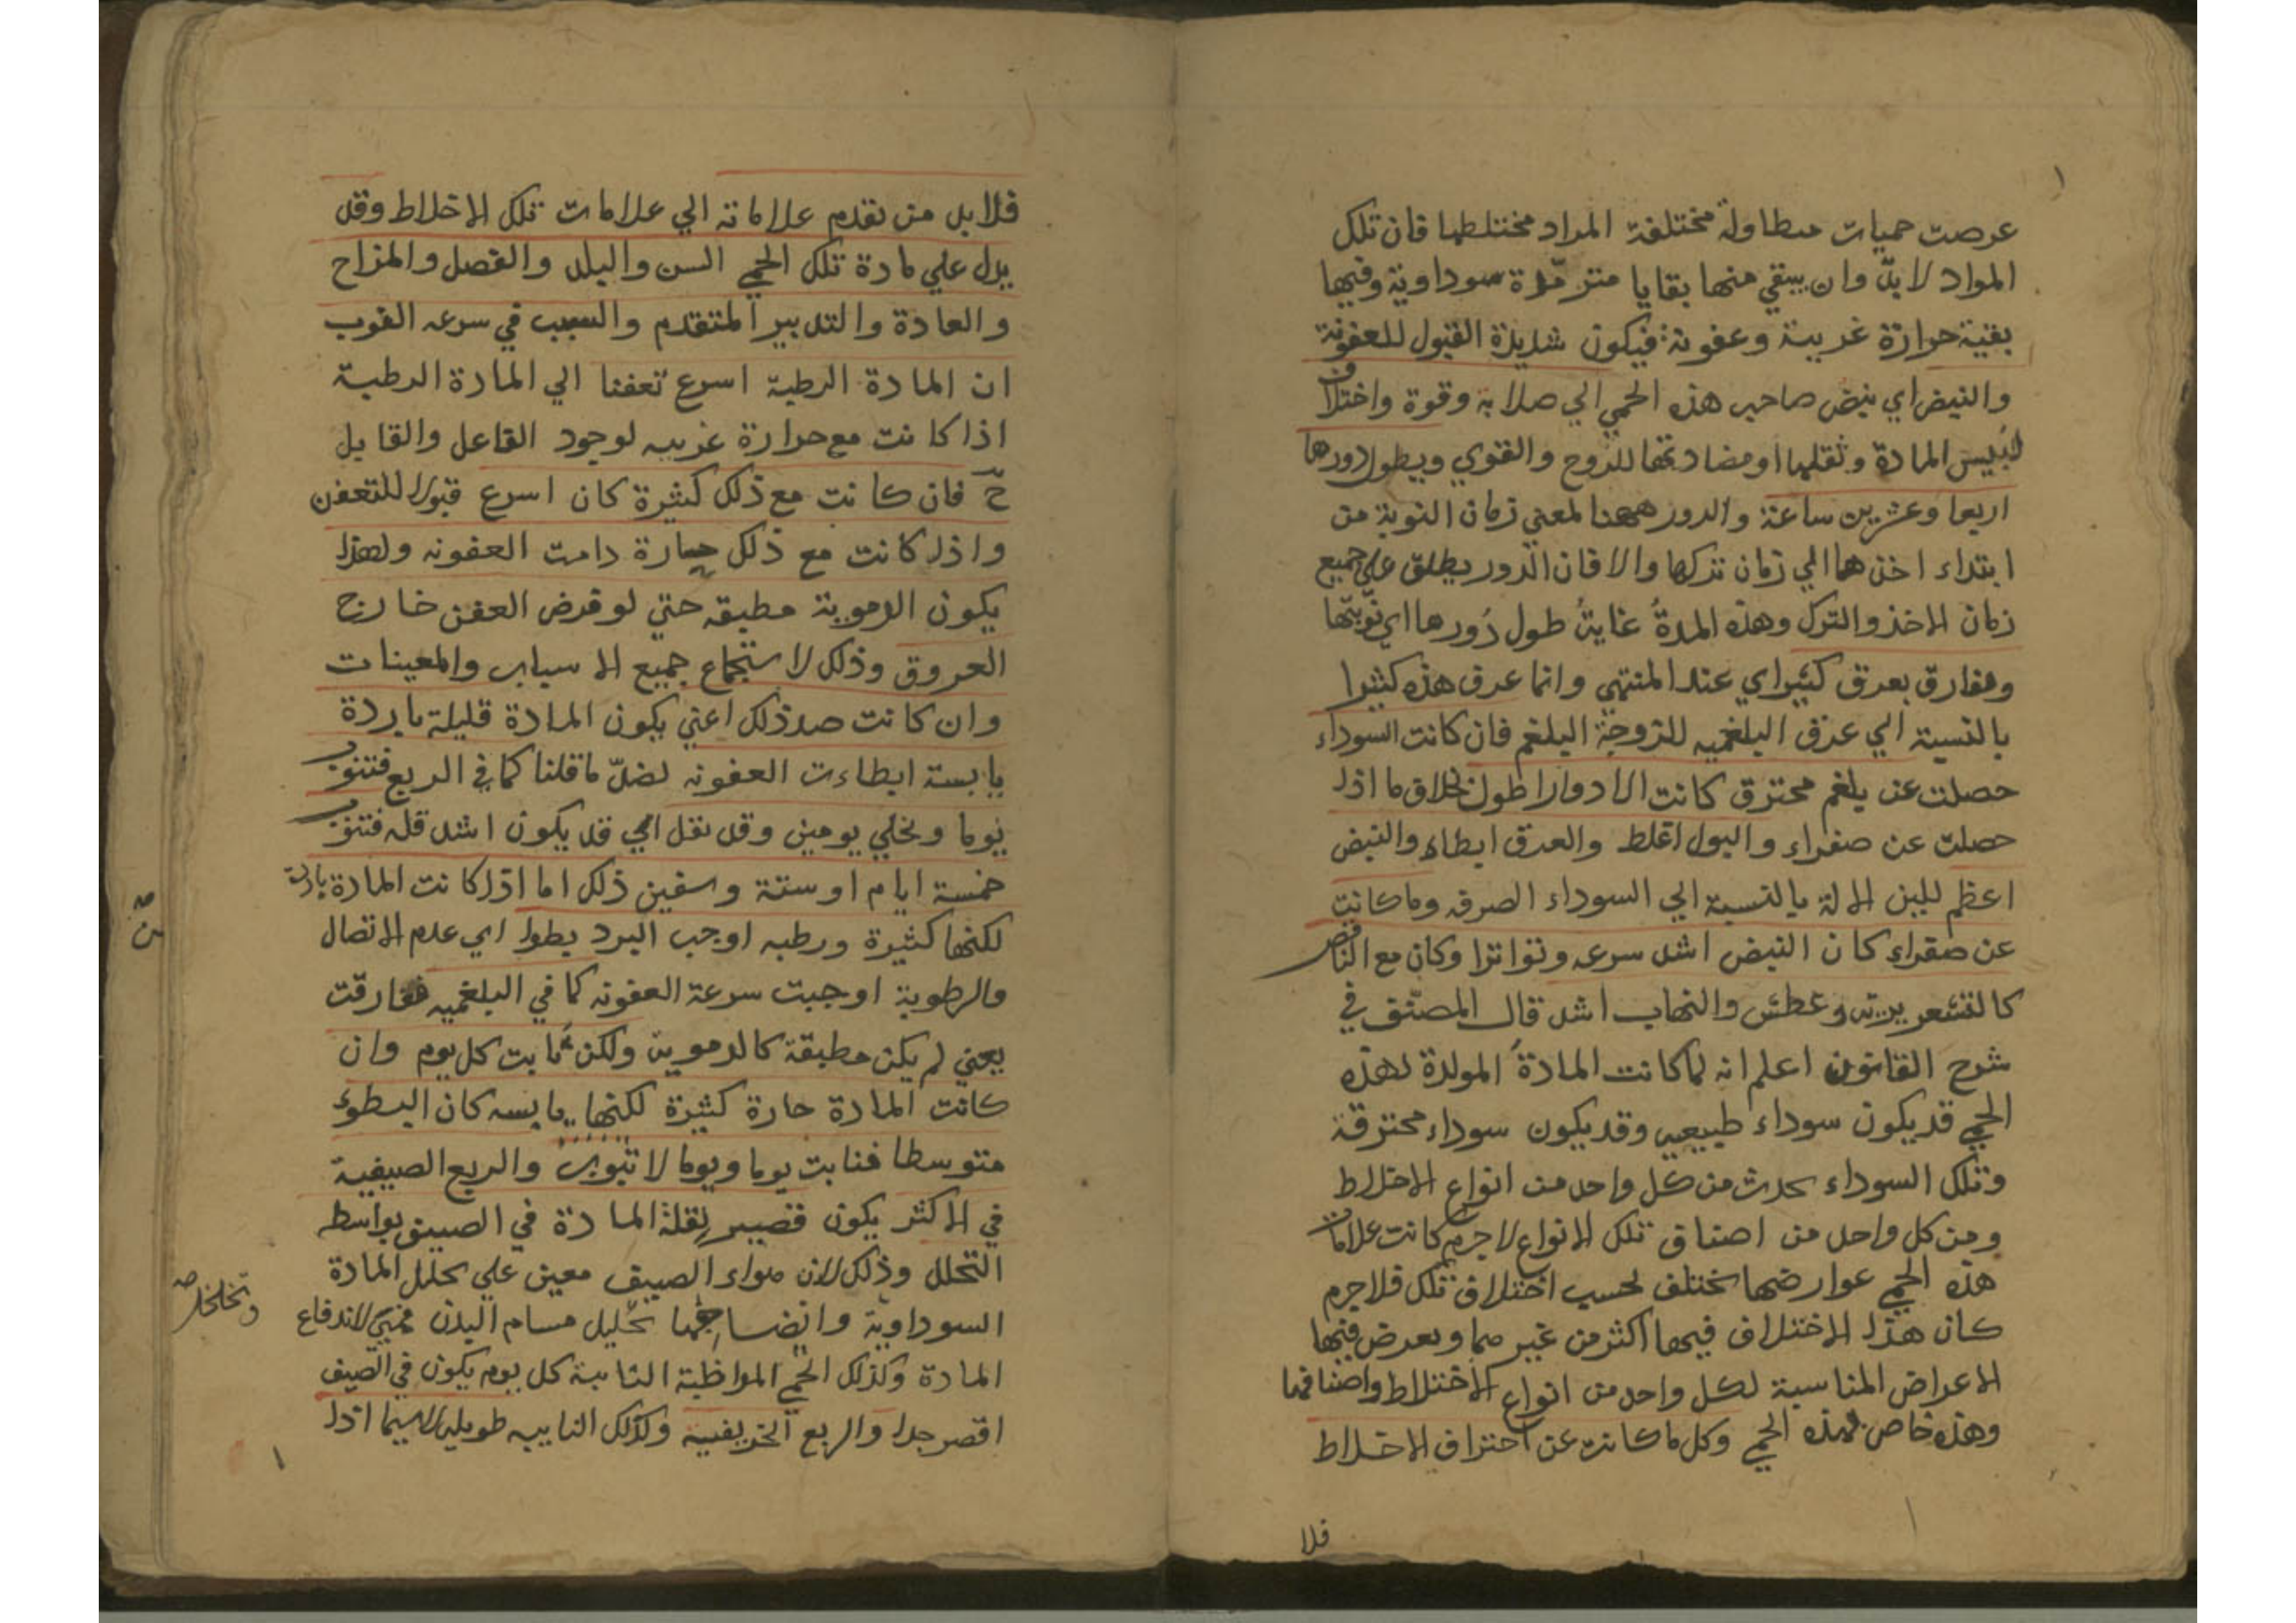 عرضت حميات متطاولة مختلفة المواد مختلطها فان تلك
المواد لا بدّ وان يبقي منها بقايا مترمّدة سوداوية وفيها
بقية حرارة غريبة وعفونة فيكون شديدة القبول للعفونة
والنبض اي نبض صاحب هذه الحمي الي صلابة وقوة واختلاف
ليبس المادة وثقلها او مضادتها للروح والقوي ويطول دورها
اربعا وعشرين ساعة والدور ههنا لمعني زمان النوبة من
ابتداء اخذها الي زمان تركها والا فان الدور يطلق علي جميع
زمان الاخذ والترك وهذه المدة غاية طول دورها اي نوبتها
وفارق بعرق كثير اي عند المنتهي وانما عرق هذه كثيرا
بالنسبة الي عرق البلغميه للزوجة البلغم فان كانت السوداء
حصلت عن بلغم محترق كانت الادوار اطول بخلاف ما اذا
حصلت عن صفراء والبول اغلظ والعرق ابطاء والنبض
اعظم للين الالة بالنسبة الي السوداء الصرفه وما كانت
عن صفراء كان النبض اشد سرعه وتواترا وكان مع النافض
كالقشعريرية وعطش والتهاب اشد قال المصنف في
شرح القانون اعلم انه لما كانت المادة المولدة لهذه
الحمي قد يكون سوداء طبيعيه وقد يكون سوداء محترقة
وتلك السوداء تحدث من كل واحد من انواع الاخلاط
ومن كل واحد من اصناف تلك الانواع لا جرم كانت علامات
هذه الحمي عوارضها تختلف بحسب اختلاف تلك فلا جرم
كان هذا الاختلاف فيها اكثر من غيرها ويعرض فيها
الاعراض المناسبة لكل واحد من انواع الاختلاط واصنافها
وهذه خاص لهذه الحمي وكل ما كانت عن احتراق الاخلاط
فلا
فلا بد من تقدم علاماته الي علامات تلك الاخلاط وقد
يدل علي مادة تلك الحمي السن والبلد والفصل والمزاج
والعادة والتدبير المتقدم والسبب في سرعه النوب
ان المادة الرطبة اسرع تعفنا الي المادة الرطبة
اذا كانت مع حرارة غريبه لوجود الفاعل والقابل
حّ فان كانت مع ذلك كثيرة كان اسرع قبولا للتعفن
واذا كانت مع ذلك حارة دامت العفونه ولهذا
يكون الدموية مطبقه حتي لو فرض العفن خارج
العروق وذلك لاستجماع جميع الاسباب والمعينات
وان كانت ضد ذلك اعني يكون المادة قليلة باردة
يابسة ابطاءت العفونه لضدّ ما قلنا كما في الربع فتنوب
يوما وتخلي يومين وقد نقل اي قد يكون اشد قله فتنوب
خمسة ايام او ستة وسفين ذلك اما اذا كانت المادة باردة
لكنها كثيرة ورطبه اوجب البرد بطوا اي عدم الاتصال
والرطوبة اوجبت سرعة العفونه كما في البلغميه ففارقت
يعني لم يكن مطبقة كالدموية ولكن نابت كل يوم وان
كانت المادة حارة كثيرة لكنها يابسه كان البطوء
متوسطا فنابت يوما ويوما لا تنوب والربع الصيفية
في الاكثر يكون قصير لقلة المادة في الصيف بواسطه
التحلل وذلك لان هواء الصيف معين علي تحلل المادة
السوداوية وانضاجها تحليل مسام البدن فتهيئ لاندفاع
وتخلخل صه
المادة وكذلك الحمي المواظبة النائبة كل يوم يكون في الصيف
اقصر جدا والربع الخريفية وكذلك النايبه طويلة لاسيما اذا